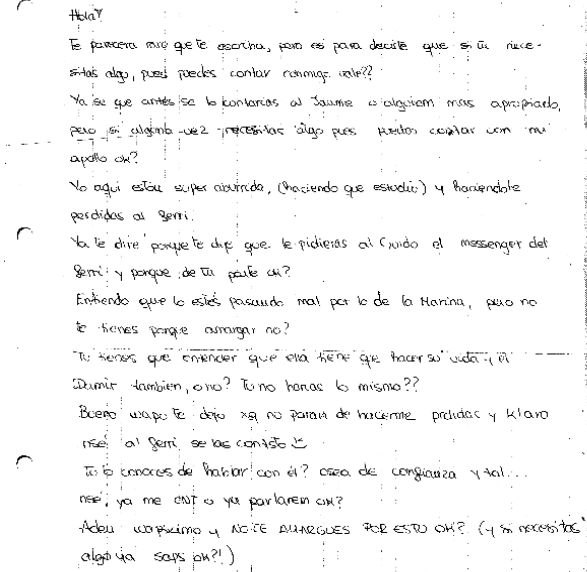 Hola?
Te parecera raro qe te escriba, pero es para decirte que si tu nece-
sitas algo, pues puedes contar conmigo vale??
Ya se qe antes se lo contarias al Jaume o alguien mas apropiado,
pero si alguna vez necesitas algo pues puedes contar con mi
apollo ok?
Yo aqui estoy super aburrida, (haciendo qe estudio) y haciendole
perdidas al Gerri.
Ya te dire porque te dije que le pidieras al Guido el messenger del
Gerri y porque de tu parte ok?
Entiendo que lo estes pasando mal por lo de la Marina, pero no
te tienes porque amargar no?
Tu tienes que entender que ella tiene qe hacer su vida y el
Damir tambien, o no? Tu no harias lo mismo??
Bueno wapo te dejo xq no paran de hacerme prdidas y klaro
nse, al Gerri se las contsto
Tu lo conoces de hablar con él? osea de confianza y tal...
nse, ya me cnt o ya parlarem ok?
Adeu wapissimo y NO TE AMARGUES POR ESTO OK? (y si necesitas
algo ya saps ok?!)